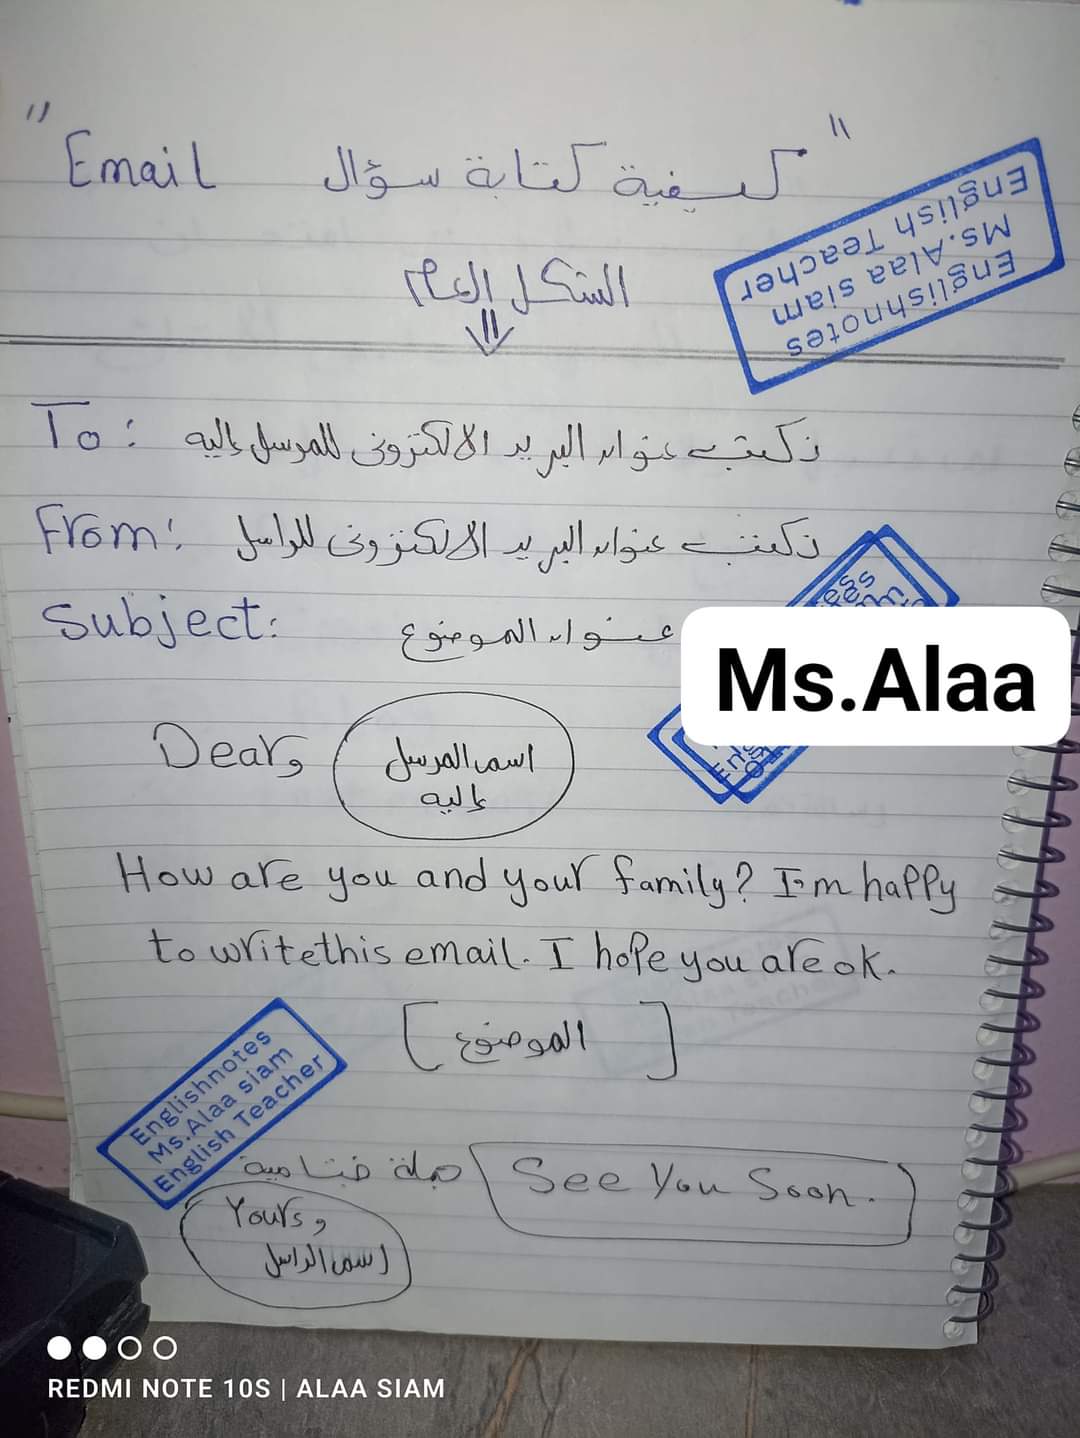 " كيفية كتابة سؤال Email "
الشكل العام
Englishnotes
Ms.Alaa siam
English Teacher
To: نكتب عنوان البريد الالكتروني للمرسل إليه
From: نكتب عنوان البريد الالكتروني للراسل
Subject: عنوان الموضوع
Ms.Alaa
Dear, اسم المرسل
إليه
How are you and your family? I'm happy
to write this email. I hope you are ok.
[ الموضوع ]
Englishnotes
Ms.Alaa siam
English Teacher
جملة ختامية See You Soon.
Yours,
اسم الراسل
REDMI NOTE 10S | ALAA SIAM